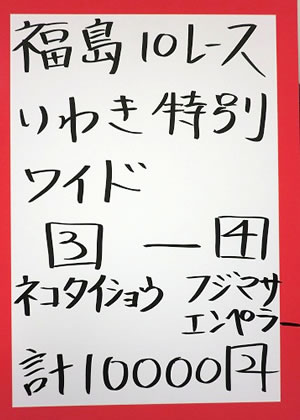 福島10レース
いわき特別
ワイド
3 ― 4
ネコタイショウ フジマサ
エンペラー
計10000円